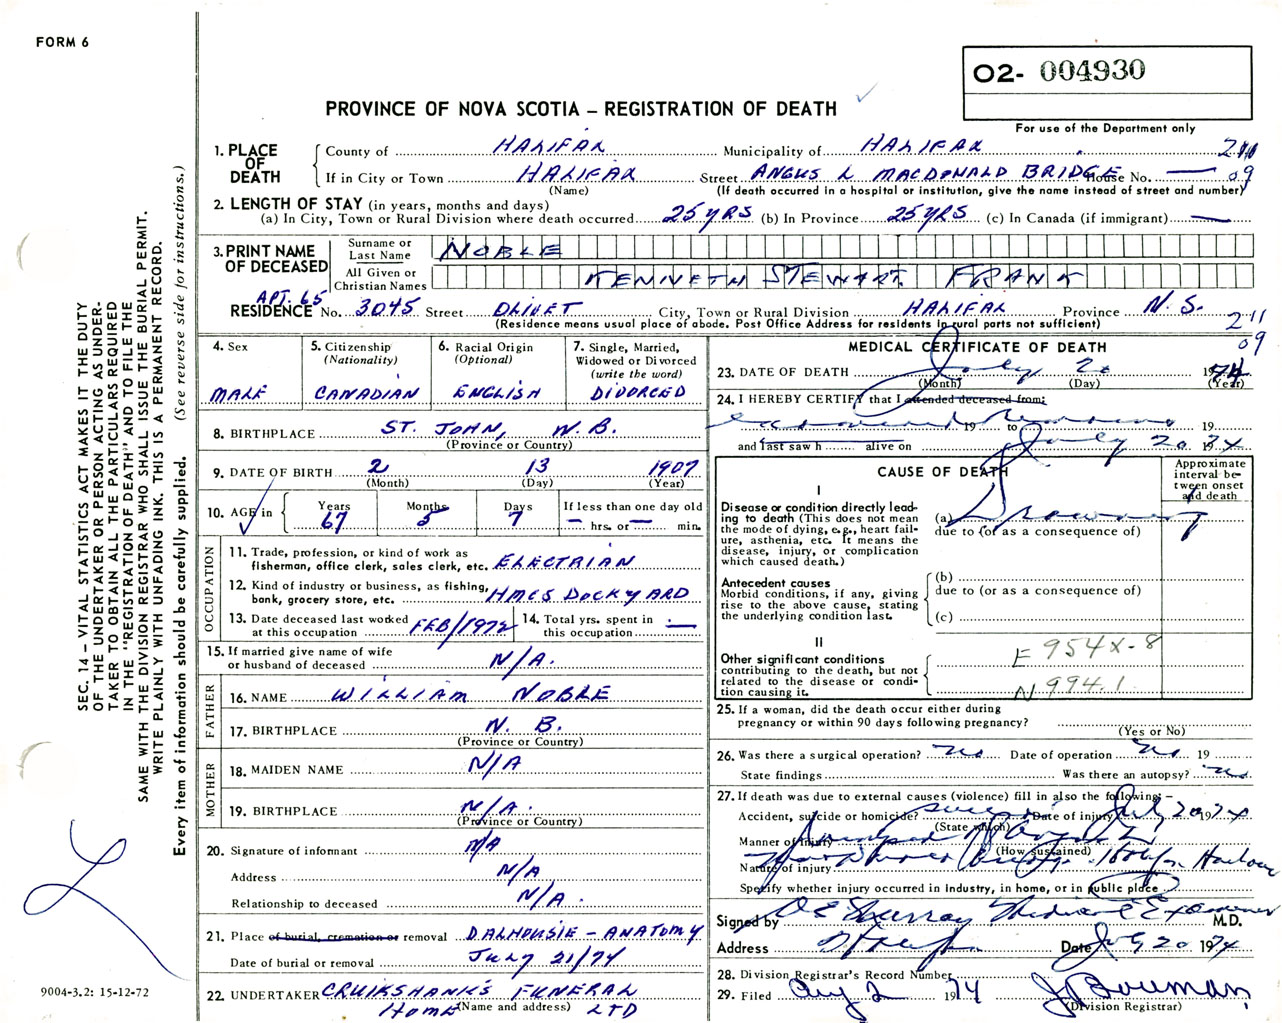 FORM 6
O2- 004930
PROVINCE OF NOVA SCOTIA – REGISTRATION OF DEATH
For use of the Department only
1. PLACE OF DEATH
County of HALIFAX Municipality of HALIFAX
If in City or Town HALIFAX Street ANGUS L MACDONALD BRIDGE House No. —
(Name) (If death occurred in a hospital or institution, give the name instead of street and number)
211
09
2. LENGTH OF STAY (in years, months and days)
(a) In City, Town or Rural Division where death occurred 25 YRS (b) In Province 25 YRS (c) In Canada (if immigrant) —
3. PRINT NAME OF DECEASED
Surname or Last Name NOBLE
All Given or Christian Names KENNETH STEWART FRANK
APT. 65
RESIDENCE No. 3045 Street OLIVET City, Town or Rural Division HALIFAX Province N.S.
(Residence means usual place of abode. Post Office Address for residents in rural parts not sufficient)
211
09
4. Sex
MALE
5. Citizenship
(Nationality)
CANADIAN
6. Racial Origin
(Optional)
ENGLISH
7. Single, Married,
Widowed or Divorced
(write the word)
DIVORCED
8. BIRTHPLACE ST. JOHN, N.B.
(Province or Country)
9. DATE OF BIRTH 2 13 1907
(Month) (Day) (Year)
10. AGE in Years 67 Months 5 Days 7 If less than one day old
— hrs. or — min.
OCCUPATION
11. Trade, profession, or kind of work as
fisherman, office clerk, sales clerk, etc. ELECTRIAN
12. Kind of industry or business, as fishing,
bank, grocery store, etc. HMCS DOCKYARD
13. Date deceased last worked
at this occupation FEB/1972
14. Total yrs. spent in
this occupation —
15. If married give name of wife
or husband of deceased N/A.
FATHER
16. NAME WILLIAM NOBLE
17. BIRTHPLACE N. B.
(Province or Country)
MOTHER
18. MAIDEN NAME N/A
19. BIRTHPLACE N/A.
(Province or Country)
20. Signature of informant N/A
Address N/A
Relationship to deceased N/A.
21. Place of burial, cremation or removal DALHOUSIE – ANATOMY
Date of burial or removal JULY 21/74
22. UNDERTAKER CRUIKSHANK'S FUNERAL
HOME (Name and address) LTD
MEDICAL CERTIFICATE OF DEATH
23. DATE OF DEATH July 20 1974
(Month) (Day) (Year)
24. I HEREBY CERTIFY that I attended deceased from:
19 to 19
and last saw h alive on July 20 1974
CAUSE OF DEATH
Approximate
interval be-
tween onset
and death
I
Disease or condition directly lead-
ing to death (This does not mean
the mode of dying, e.g., heart fail-
ure, asthenia, etc. It means the
disease, injury, or complication
which caused death.)
(a) Drowning
due to (or as a consequence of)
Antecedent causes
Morbid conditions, if any, giving
rise to the above cause, stating
the underlying condition last.
(b)
due to (or as a consequence of)
(c)
II
Other significant conditions
contributing to the death, but not
related to the disease or condi-
tion causing it.
E 954X-8
N 994.1
25. If a woman, did the death occur either during
pregnancy or within 90 days following pregnancy?
(Yes or No)
26. Was there a surgical operation? no Date of operation no 19
State findings Was there an autopsy? no
27. If death was due to external causes (violence) fill in also the following:–
Accident, suicide or homicide? Date of injury July 20, 74
(State which)
Manner of injury
(How sustained)
Nature of injury Bridge. Halifax Harbour
Specify whether injury occurred in industry, in home, or in public place
Signed by D E Murray Medical Examiner M.D.
Address Date July 20 1974
28. Division Registrar's Record Number
29. Filed Aug 2 1974 J Bowman
(Division Registrar)
SEC. 14 – VITAL STATISTICS ACT MAKES IT THE DUTY
OF THE UNDERTAKER OR PERSON ACTING AS UNDER-
TAKER TO OBTAIN ALL THE PARTICULARS REQUIRED
IN THE "REGISTRATION OF DEATH" AND TO FILE THE
SAME WITH THE DIVISION REGISTRAR WHO SHALL ISSUE THE BURIAL PERMIT.
WRITE PLAINLY WITH UNFADING INK. THIS IS A PERMANENT RECORD.
Every item of information should be carefully supplied. (See reverse side for instructions.)
9004-3.2: 15-12-72